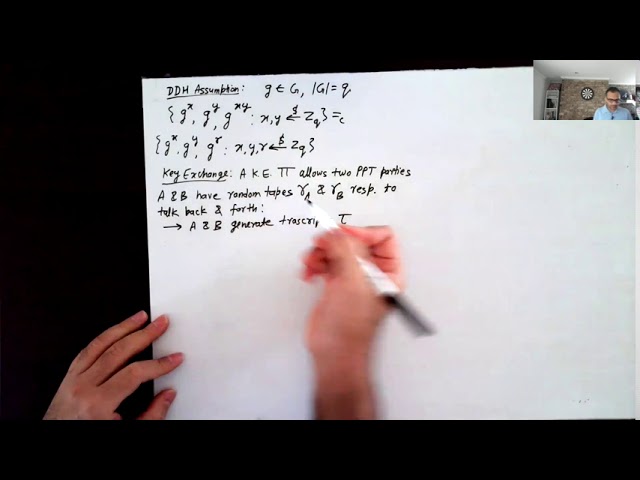 DDH Assumption: g ∈ G, |G| = q
{g^x, g^y, g^xy : x,y ←$ Z_q} =_c
{g^x, g^y, g^r : x,y,r ←$ Z_q}
Key Exchange: A K.E. Π allows two PPT parties
A & B have random tapes r_A & r_B resp. to
talk back & forth:
→ A & B generate trascrip τ